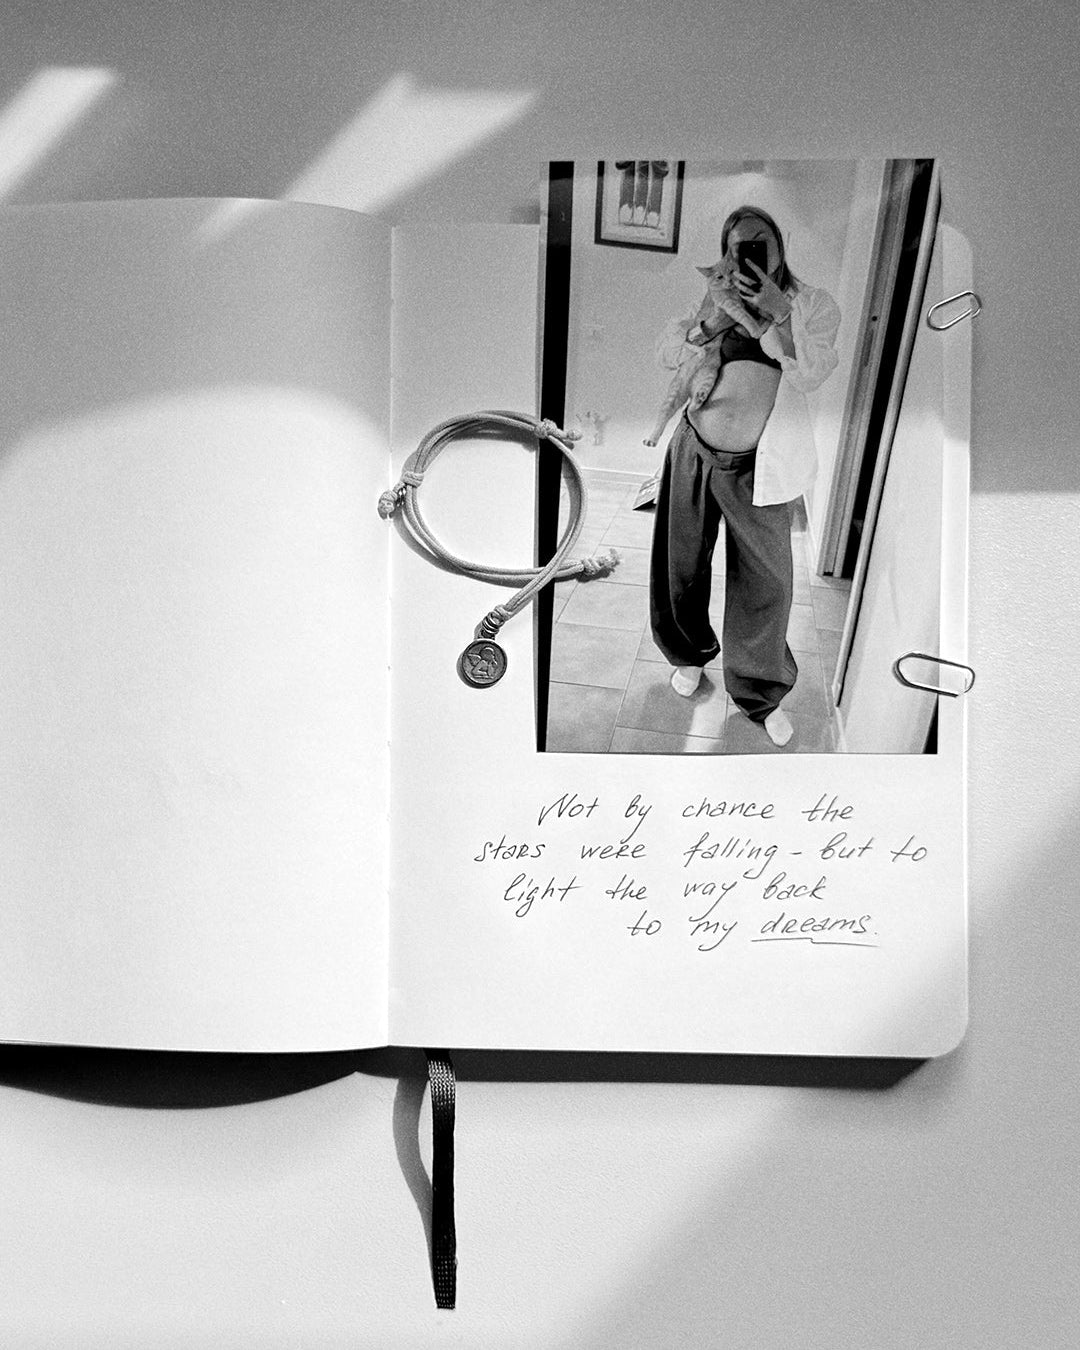 Not by chance the
stars were falling - but to
light the way back
to my dreams.